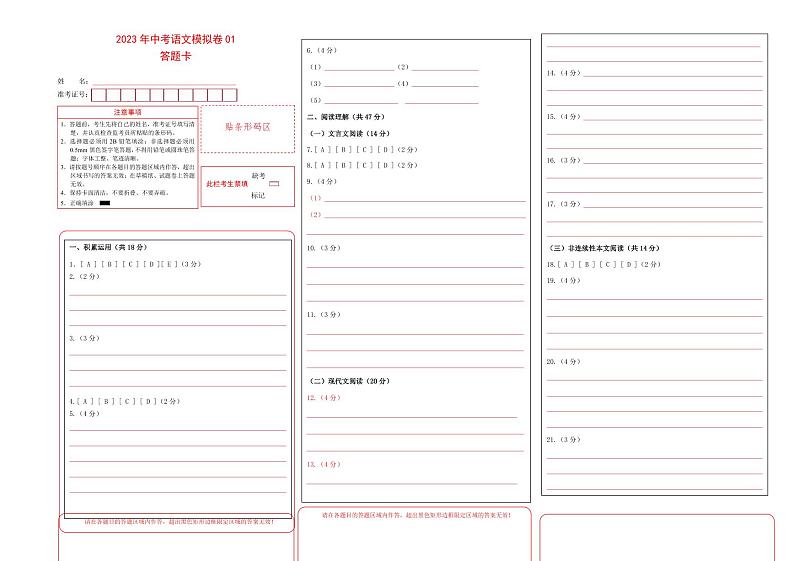 2023 年中考语文模拟卷 01
答题卡
姓　　名：
准考证号：
注意事项
1、答题前，考生先将自己的姓名，准考证号填写清
楚，并认真检查监考员所粘贴的条形码。
2、选择题必须用 2B 铅笔填涂；非选择题必须用
0.5mm 黑色签字笔答题，不得用铅笔或圆珠笔答
题；字体工整、笔迹清晰。
3、请按题号顺序在各题目的答题区域内作答，超出
区域书写的答案无效；在草稿纸、试题卷上答题
无效。
4、保持卡面清洁，不要折叠、不要弄破。
5、正确填涂
贴条形码区
此栏考生禁填
缺考
标记
一、积累运用（共 18 分）
1、[ A ] [ B ] [ C ] [ D ][ E ](3 分)
2.（2 分）
3.（3 分）
4.[ A ] [ B ] [ C ] [ D ](2 分)
5.（4 分）
请在各题目的答题区域内作答，超出黑色矩形边框限定区域的答案无效！
6.（4 分）
（1）（2）
（3）（4）
（5）
二、阅读理解（共 47 分）
（一）文言文阅读（14 分）
7.[ A ] [ B ] [ C ] [ D ](2 分)
8.[ A ] [ B ] [ C ] [ D ](2 分)
9.（4 分）
（1）
（2）
10.（3 分）
11.（3 分）
（二）现代文阅读（20 分）
12.（4 分）
13.（4 分）
请在各题目的答题区域内作答，超出黑色矩形边框限定区域的答案无效！
14.（4 分）
15.（4 分）
16.（3 分）
17.（3 分）
（三）非连续性本文阅读（共 14 分）
18.[ A ] [ B ] [ C ] [ D ](2 分)
19.（4 分）
20.（4 分）
21.（3 分）